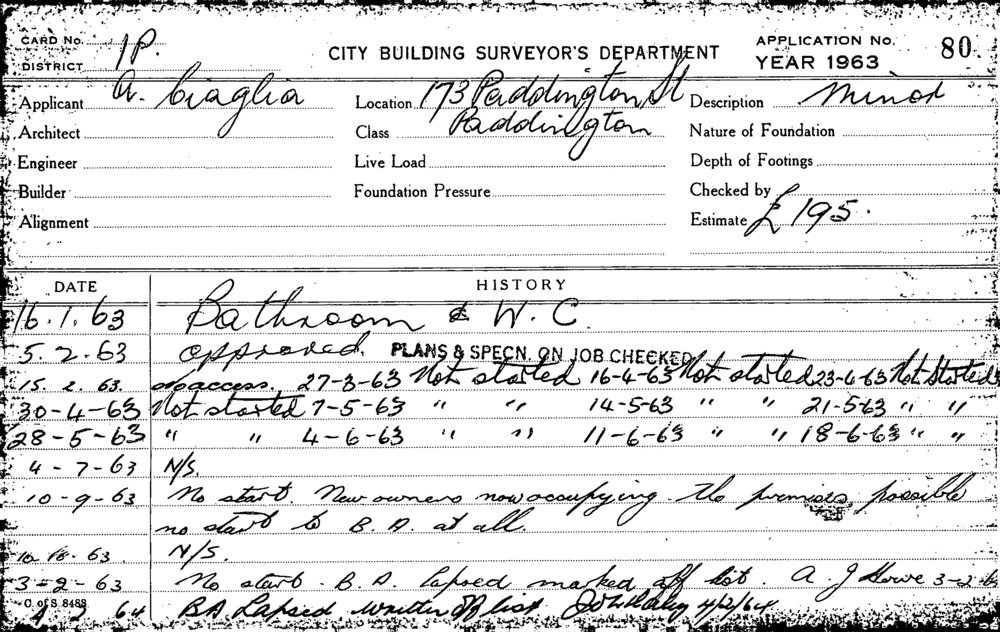 CARD No. 1P. CITY BUILDING SURVEYOR'S DEPARTMENT APPLICATION No. 80
DISTRICT YEAR 1963
Applicant A. Ciaglia Location 173 Paddington St Description Minor
Architect Class Paddington Nature of Foundation
Engineer Live Load Depth of Footings
Builder Foundation Pressure Checked by
Alignment Estimate £195.
DATE HISTORY
16.1.63 Bathroom & W.C.
5.2.63 approved. PLANS & SPECN. ON JOB CHECKED
15.2.63. No access. 27-3-63 Not started 16-4-63 Not started 23-4-63 Not Started
30-4-63 Not started 7-5-63 " " 14-5-63 " " 21-5-63 " "
28-5-63 " " 4-6-63 " " 11-6-63 " " 18-6-63 " "
4-7-63 N/S.
10-9-63 No start. New owners now occupying the premises possible
no start to B.A. at all.
63. N/S.
3-2-63 No start. B.A. lapsed marked off list. A. J Howe 3-2-
C. of S. 8488 64 B.A. Lapsed written off list 4/2/64